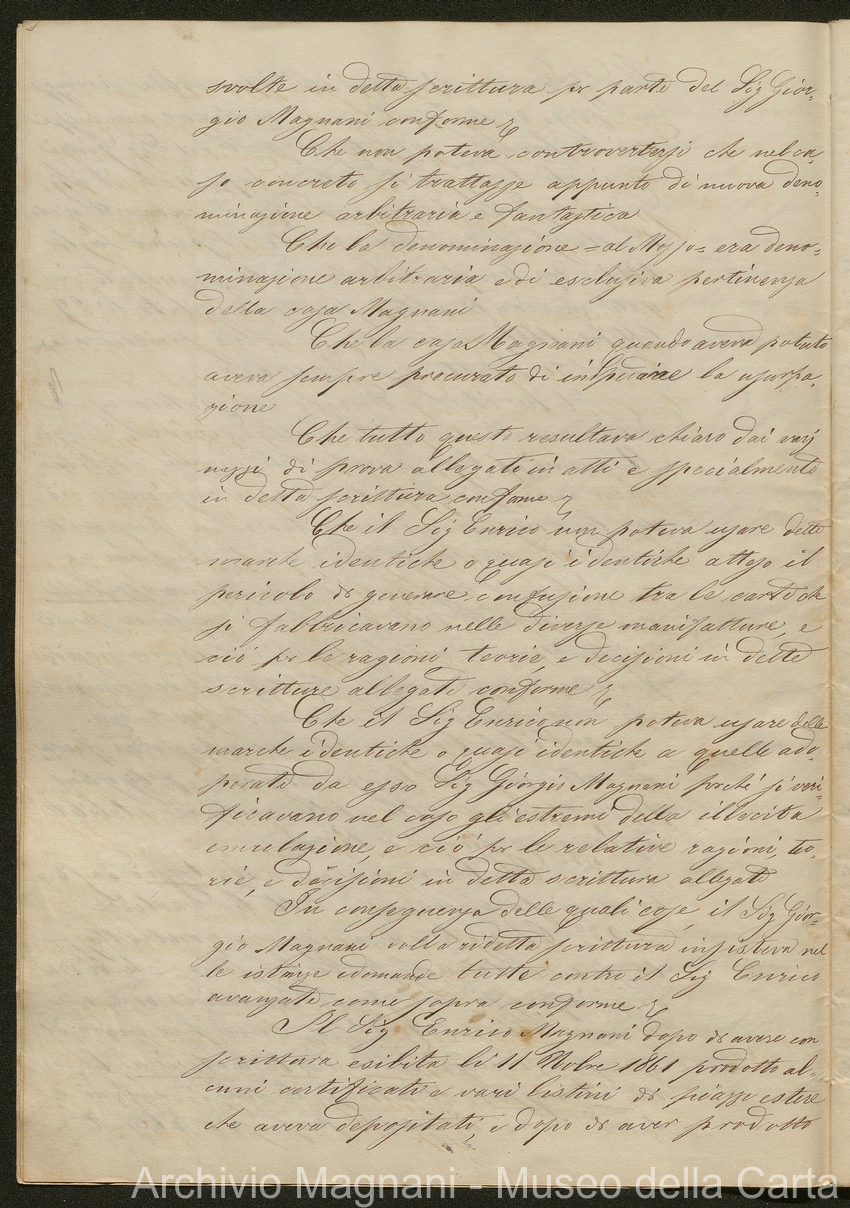 svolte in detta scrittura pr parte del Sig Gior-
gio Magnani conforme
Che non poteva controvertersi che nel ca-
so concreto si trattasse appunto di nuova deno-
minazione arbitraria e fantastica
Che la denominazione = al Masso = era deno-
minazione arbitraria e di esclusiva pertinenza
della casa Magnani
Che la casa Magnani quando aveva potuto
aveva sempre procurato di inpedirne la usurpa-
zione
Che tutto questo resultava chiaro dai varj
mezzi di prova allegati in atti e specialmente
in detta scrittura conforme
Che il Sig Enrico non poteva usare dette
marche identiche o quasi identiche atteso il
pericolo di generare confusione tra le carte che
si fabbricavano nelle diverse manifatture, e
ciò pr le ragioni teorie, e decisioni in dette
scritture allegate conforme
Che il Sig Enrico non poteva usare delle
marche identiche o quasi identiche a quelle ado-
perate da esso Sig Giorgio Magnani perché si veri-
ficavano nel caso gli estremi della illecita
emulazione, e ciò pr le relative ragioni, teo-
rie, e decisioni in detta scrittura allegate
In conseguenza delle quali cose, il Sig Gior-
gio Magnani colla ridetta scrittura insisteva nel
le istanze e domande tutte contro il Sig Enrico
avanzate come sopra conforme
Il Sig Enrico Magnani dopo di avere con
scrittura esibita li 11 Nobre 1861 prodotto al-
cuni certificati e vari listini di piazze estere
che aveva depositati, e dopo di aver prodotto
Archivio Magnani - Museo della Carta